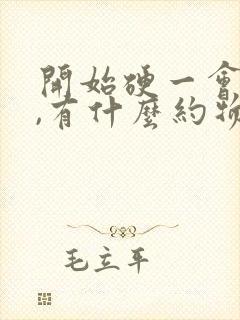 開始硬一會
,有什麼約物
毛立平